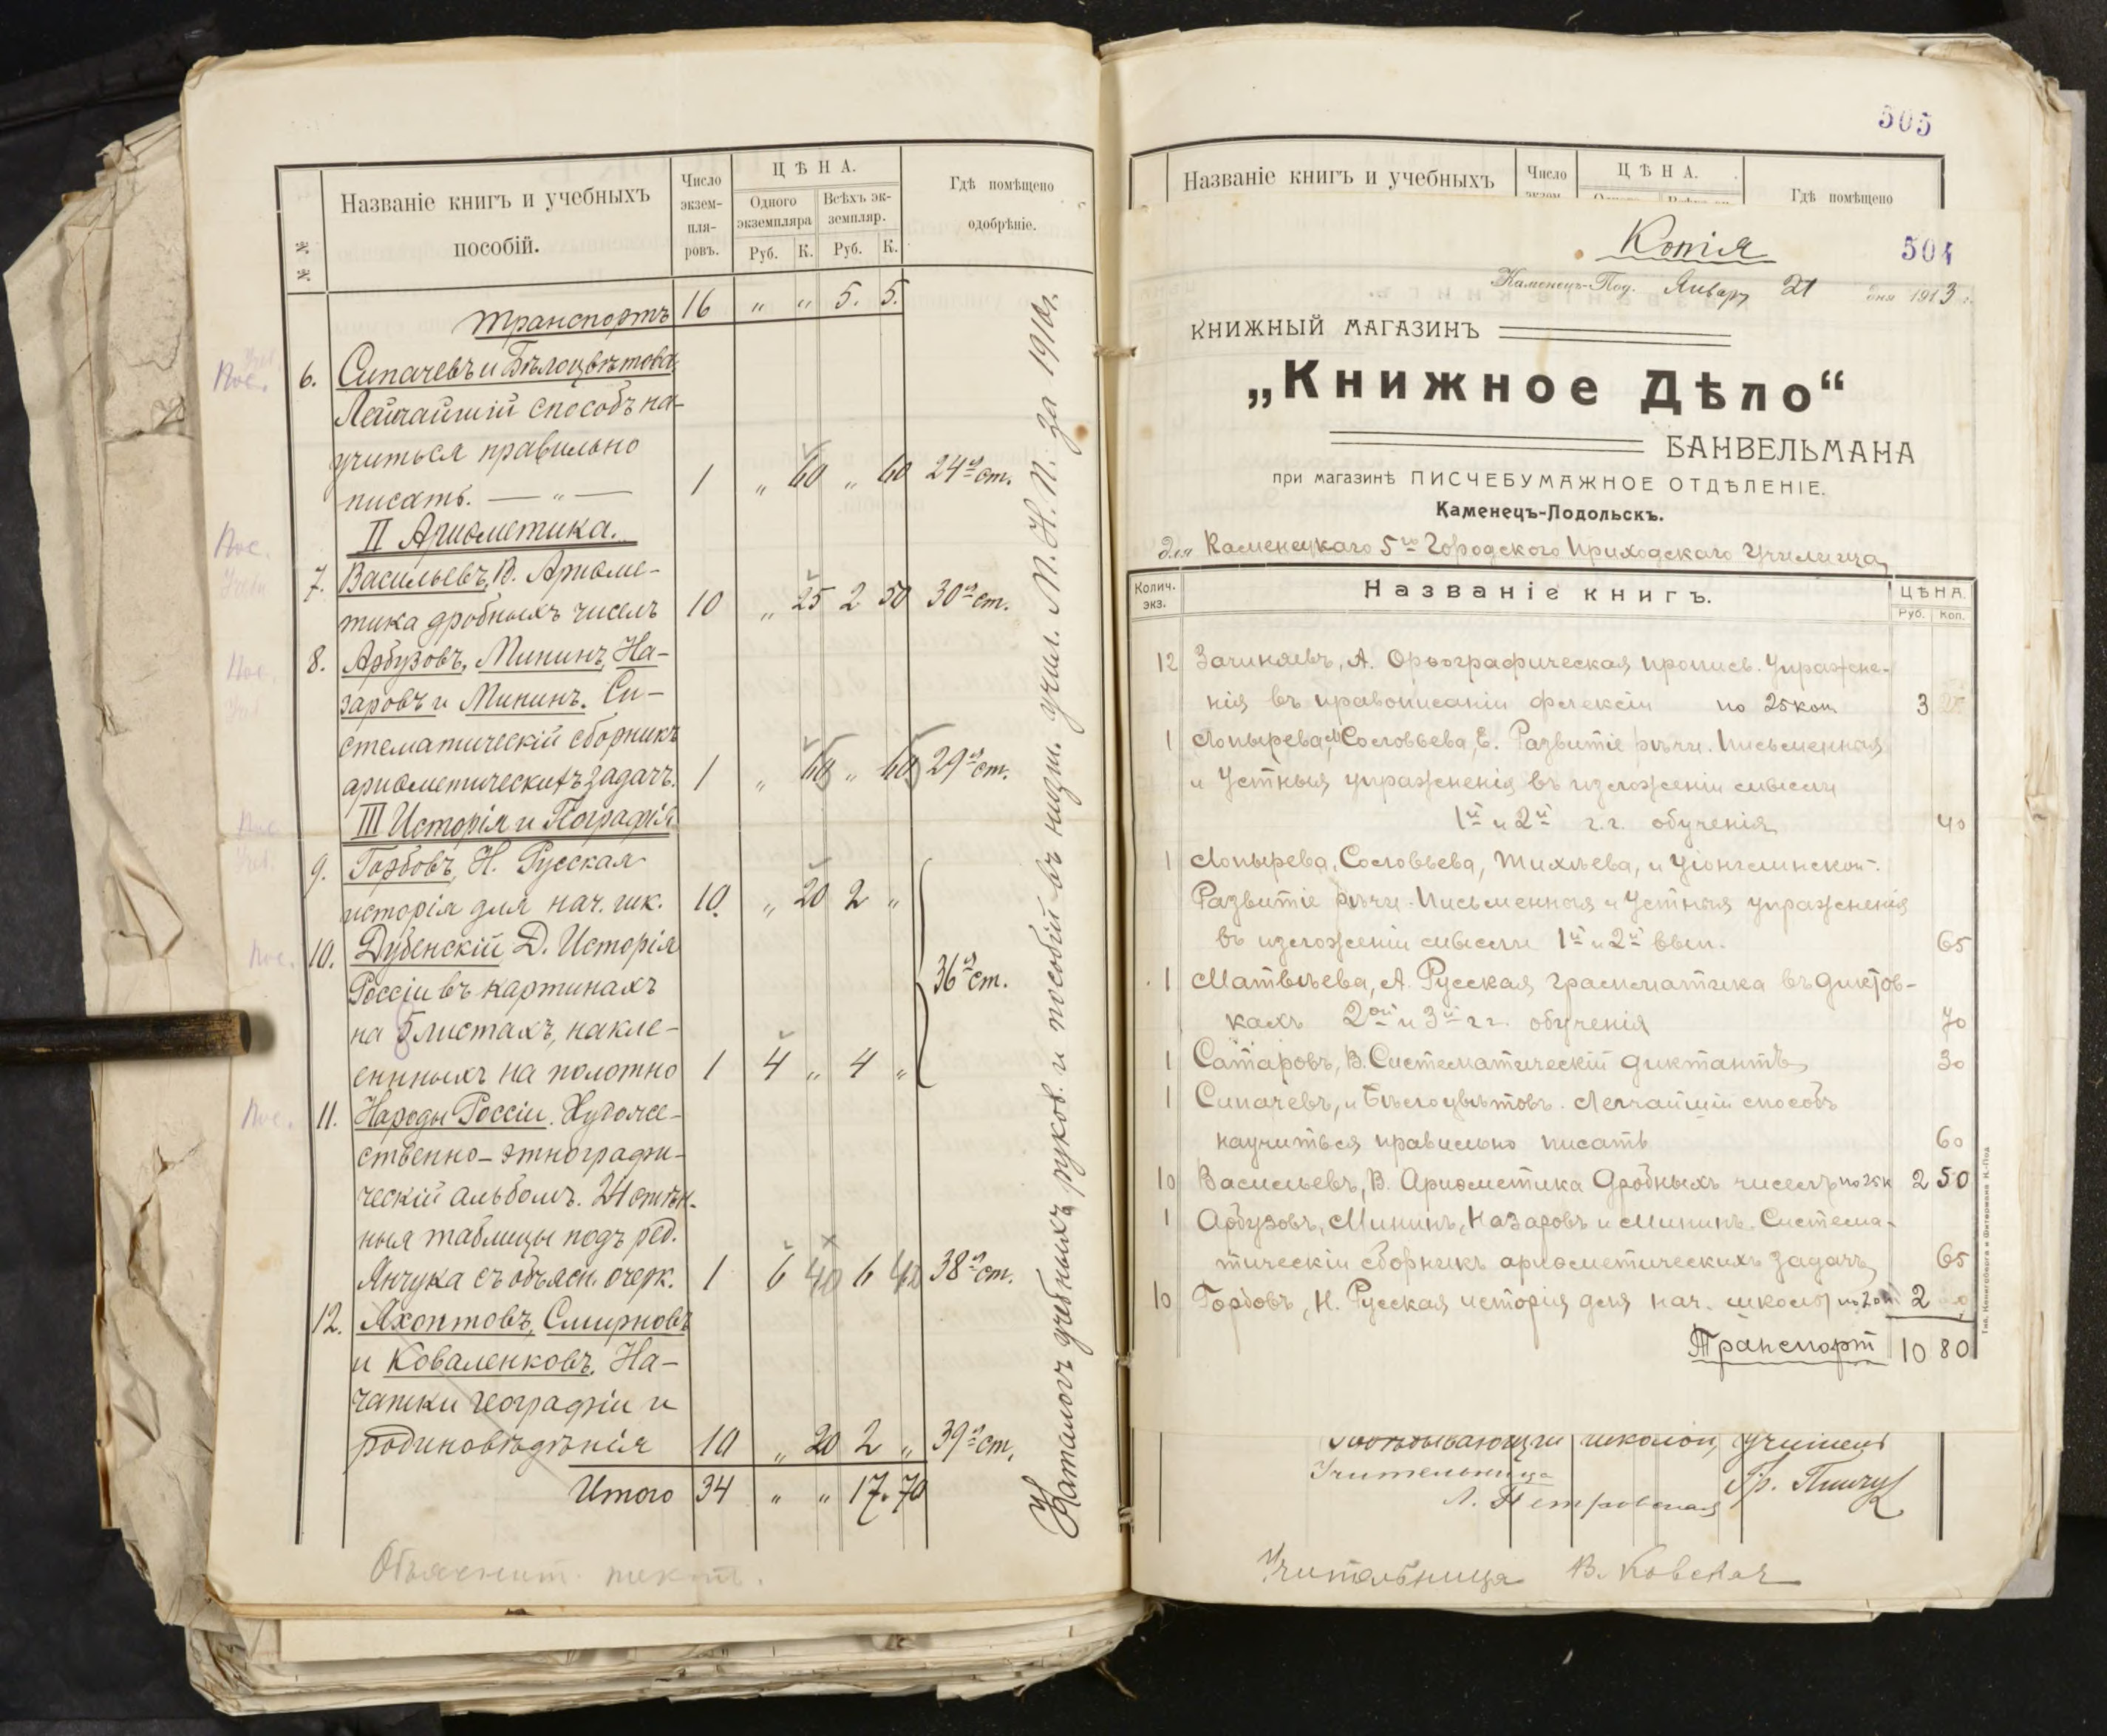 № №
Названіе книгъ и учебныхъ
пособій.
Число
экзем-
пля-
ровъ.
ЦѢНА.
Одного
экземпляра
Всѣхъ эк-
земпляр.
Руб. К. Руб. К.
Гдѣ помѣщено
одобрѣніе.
Транспортъ 16 " " 5. 5.
Пос. 6. Сипачевъ и Бѣлоцвѣтова.
Легчайшій способъ на-
учиться правильно
писать. — " — 1 " 60 " 60 24я ст.
Пос. II Ариѳметика.
7. Васильевъ, В. Ариѳме-
тика дробныхъ чиселъ 10 " 25 2 50 30я ст.
Пос. 8. Арбузовъ, Мининъ, На-
заровъ и Мининъ. Си-
стематическій сборникъ
ариѳметическихъ задачъ. 1 " 65 " 65 29я ст.
III Исторія и Географія
9. Горбовъ, Н. Русская
исторія для нач. шк. 10. " 20 2 "
Пос. 10. Дубенскій Д. Исторія
Россіи въ картинахъ 36я ст.
на 5 листахъ, накле-
енныхъ на полотно 1 4 " 4 "
Пос. 11. Народы Россіи. Художе-
ственно-этнографи-
ческій альбомъ. 24 стѣн-
ныя таблицы подъ ред.
Янчука съ объясн. очерк. 1 6 40 6 40 38я ст.
12. Яхонтовъ, Смирновъ
и Коваленковъ. На-
чатки географіи и
родиновѣдѣнія 10 " 20 2 " 39я ст.
Итого 34 " " 17. 70
Объяснит. текст.
Каталогъ учебныхъ руков. и пособій въ низш. учил. М. Н. П. за 1910г.
505
Названіе книгъ и учебныхъ
Число
ЦѢНА.
Гдѣ помѣщено
Копія
504
Каменецъ-Под. Январ 21 дня 1913 г.
КНИЖНЫЙ МАГАЗИНЪ
„Книжное Дѣло“
БАНВЕЛЬМАНА
при магазинѣ ПИСЧЕБУМАЖНОЕ ОТДѢЛЕНІЕ.
Каменецъ-Подольскъ.
для Каменецкаго 5го Городского Приходскаго Училища
Колич.
экз.
Названіе книгъ.
ЦѢНА.
Руб. Коп.
12 Зачиняевъ, А. Орѳографическая пропись. Упражне-
нія въ правописаніи флексіи по 25 коп. 3
1 Лопырева, Соловьева, Е. Развитіе рѣчи. Письменныя
и Устныя упражненія въ изложеніи мысли
1й и 2й г.г. обученія 40
1 Лопырева, Соловьева, Тихѣева, и
Развитіе рѣчи. Письменныя и Устныя упражненія
въ изложеніи мысли 1й и 2й вып. 65
1 Матвѣева, А. Русская грамматика въ диктов-
кахъ 2ой и 3й г.г. обученія 70
1 Сатаровъ, В. Систематическій диктантъ 30
1 Сипачевъ, и Бѣлоцвѣтовъ. Легчайшій способъ
научиться правильно писать 60
10 Васильевъ, В. Ариѳметика Дробныхъ чиселъ по 25 к 2 50
1 Арбузовъ, Мининъ, Назаровъ и Мининъ. Система-
тическій сборникъ ариѳметическихъ задачъ 65
10 Горбовъ, Н. Русская исторія для нач. школы по 20 к 2
Транспорт 10 80
Завѣдывающій школой, учитель
Учительница
Л. Петровская
Учительница В.